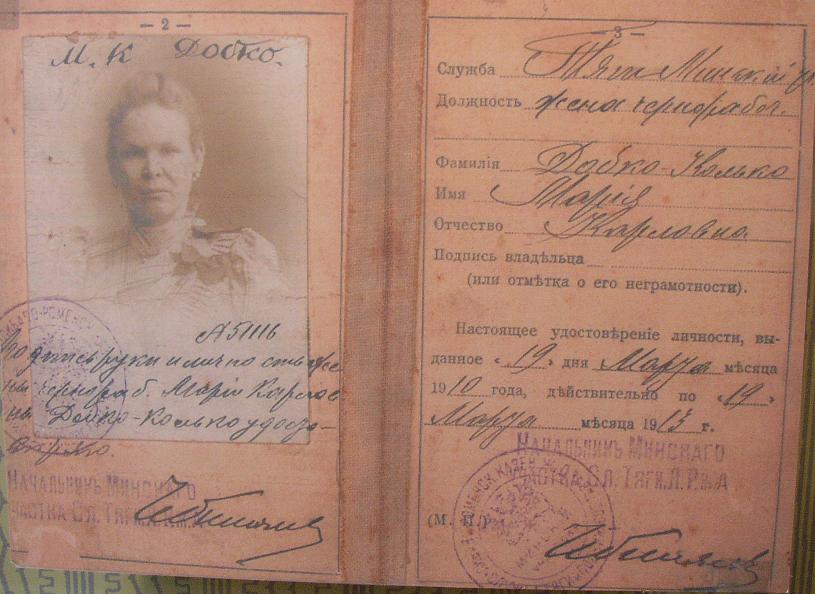 — 2 —
М. К Добко.
А 5111б
Подпись руки и личность же
чернораб. Маріи Карлов
Добко-Колько удосто-
веряю.
НАЧАЛЬНИКЪ МИНСКАГО
УЧАСТКА СЛ. ТЯГИ Л. Р. Ж. Д
— 3 —
Служба Тяги Минскій
Должность жена чернорабоч.
Фамилія Добко-Колько
Имя Марія
Отчество Карловна
Подпись владѣльца
(или отмѣтка о его неграмотности).
Настоящее удостовѣреніе личности, вы-
данное «19» дня Марта мѣсяца
1910 года, дѣйствительно по «19»
Марта мѣсяца 1913 г.
НАЧАЛЬНИКЪ МИНСКАГО
УЧАСТКА СЛ. ТЯГИ Л. Р. Ж. Д
(М. П.)